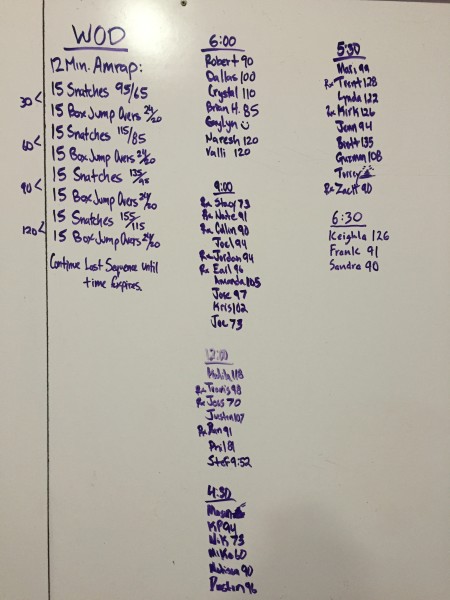 WOD
12 Min. Amrap:
15 Snatches 95/65
30<
15 Box Jump Overs 24/20
15 Snatches 115/85
60<
15 Box Jump Overs 24/20
15 Snatches 135/95
90<
15 Box Jump Overs 24/20
15 Snatches 155/115
120<
15 Box Jump Overs 24/20
Continue Last Sequence until
time Expires.
6:00
Robert 90
Dallas 100
Crystal 110
Brian H. 85
Gaylyn
Naresh 120
Valli 120
9:00
Rx Stacy 73
Rx Nate 91
Rx Collin 90
Joel 94
Rx Jordan 94
Rx Earl 96
Amanda 105
Jose 97
Kris 102
Joe 73
12:00
118
Rx Travis 98
Rx Jess 70
Justin 107
Rx Dan 91
Phil 81
Stef 9:52
4:30
Mason
KP 94
Nik 73
Mike 60
Madison 90
Dustin 96
5:30
Mari 99
Rx Trent 128
Lynda 122
Rx Kirk 126
Jenn 94
Brett 135
Guzman 108
Torrey
Rx Zach 90
6:30
Keighla 126
Frank 91
Sandra 90